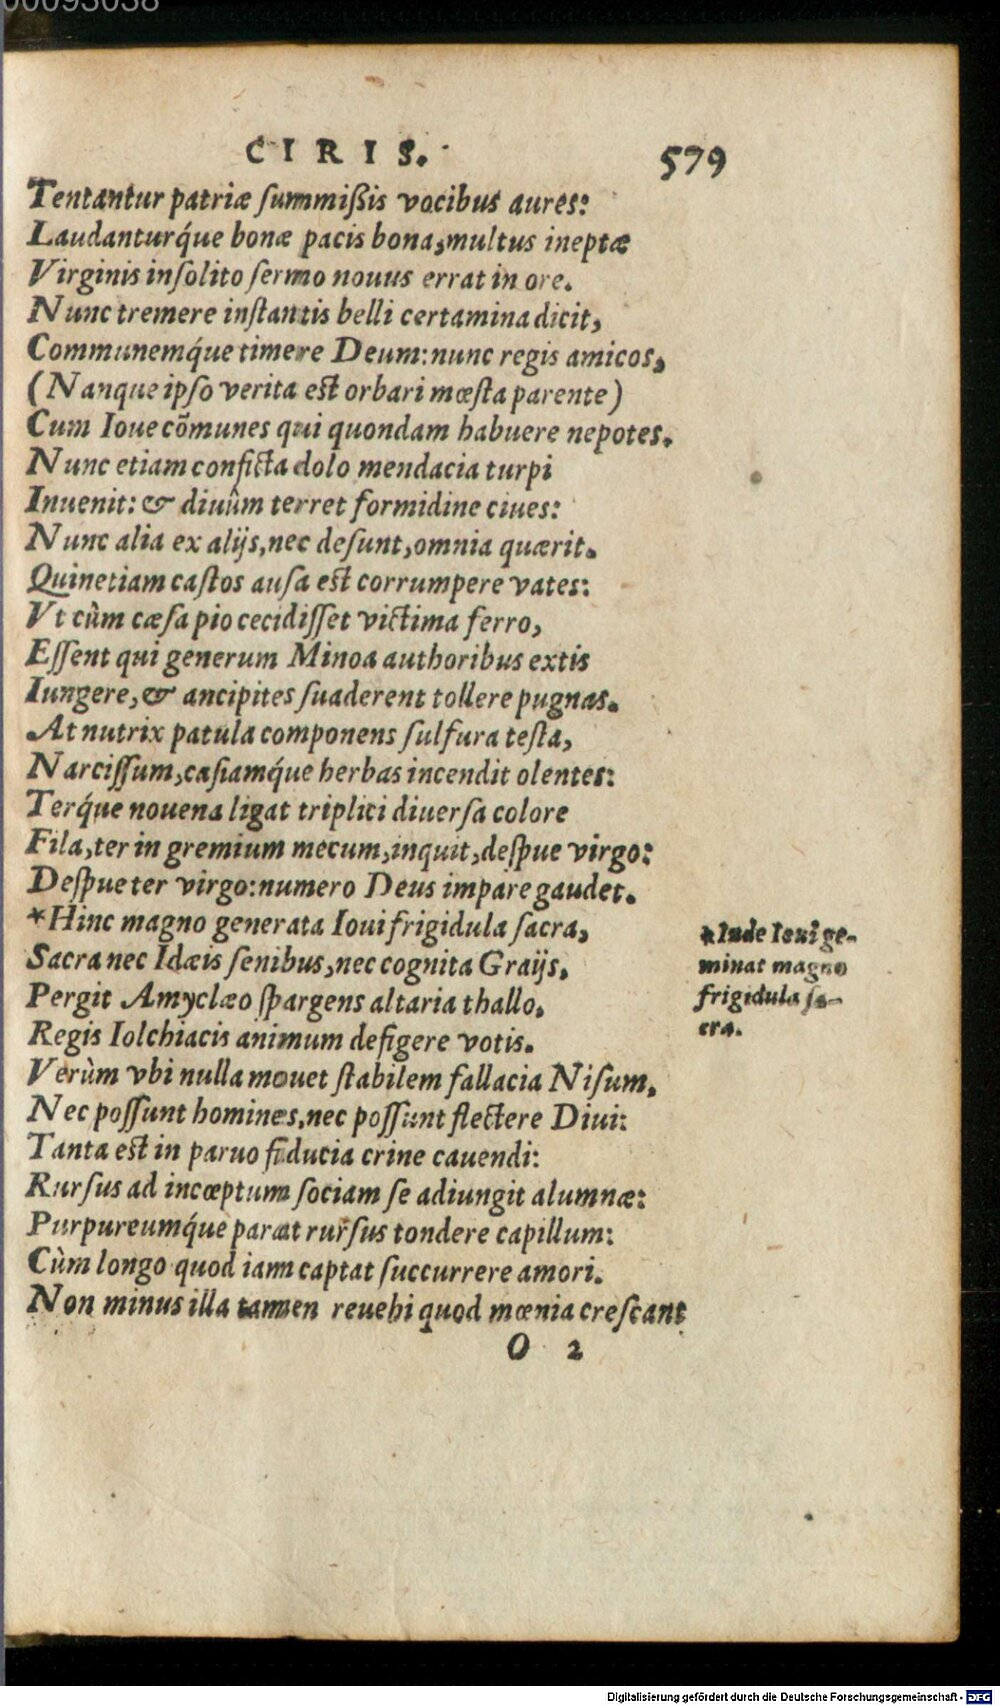 00093038
CIRIS.
579
Tentantur patriæ ſummißis vocibus aures:
Laudanturq́ue bonæ pacis bona, multus ineptæ
Virginis inſolito ſermo nouus errat in ore.
Nunc tremere inſtantis belli certamina dicit,
Communemq́ue timere Deum: nunc regis amicos,
(Nanque ipſo verita est orbari mœſta parente)
Cum Ioue cõmunes qui quondam habuere nepotes.
Nunc etiam conficta dolo mendacia turpi
Inuenit: & diuûm terret formidine ciues:
Nunc alia ex alijs, nec deſunt, omnia quærit.
Quinetiam caſtos auſa est corrumpere vates:
Vt cùm cæſa pio cecidiſſet victima ferro,
Eſſent qui generum Minoa authoribus extis
Iungere, & ancipites ſuaderent tollere pugnas.
At nutrix patula componens ſulfura teſta,
Narciſſum, caſiamq́ue herbas incendit olentes:
Terq́ue nouena ligat triplici diuerſa colore
Fila, ter in gremium mecum, inquit, deſpue virgo:
Deſpue ter virgo: numero Deus impare gaudet.
*Hinc magno generata Ioui frigidula ſacra,
Sacra nec Idæis ſenibus, nec cognita Graijs,
Pergit Amyclæo ſpargens altaria thallo,
Regis Iolchiacis animum defigere votis.
Verùm vbi nulla mouet ſtabilem fallacia Niſum,
Nec poſſunt homines, nec poſſunt flectere Diui:
Tanta est in paruo fiducia crine cauendi:
Rurſus ad incœptum ſociam ſe adiungit alumnæ:
Purpureumq́ue parat rurſus tondere capillum:
Cùm longo quod iam captat ſuccurrere amori.
Non minus illa tamen reuehi quod mœnia creſcant
O 2
*Inde Ioui ge-
minat magno
frigidula ſa-
cra.
Digitalisierung gefördert durch die Deutsche Forschungsgemeinschaft - DFG